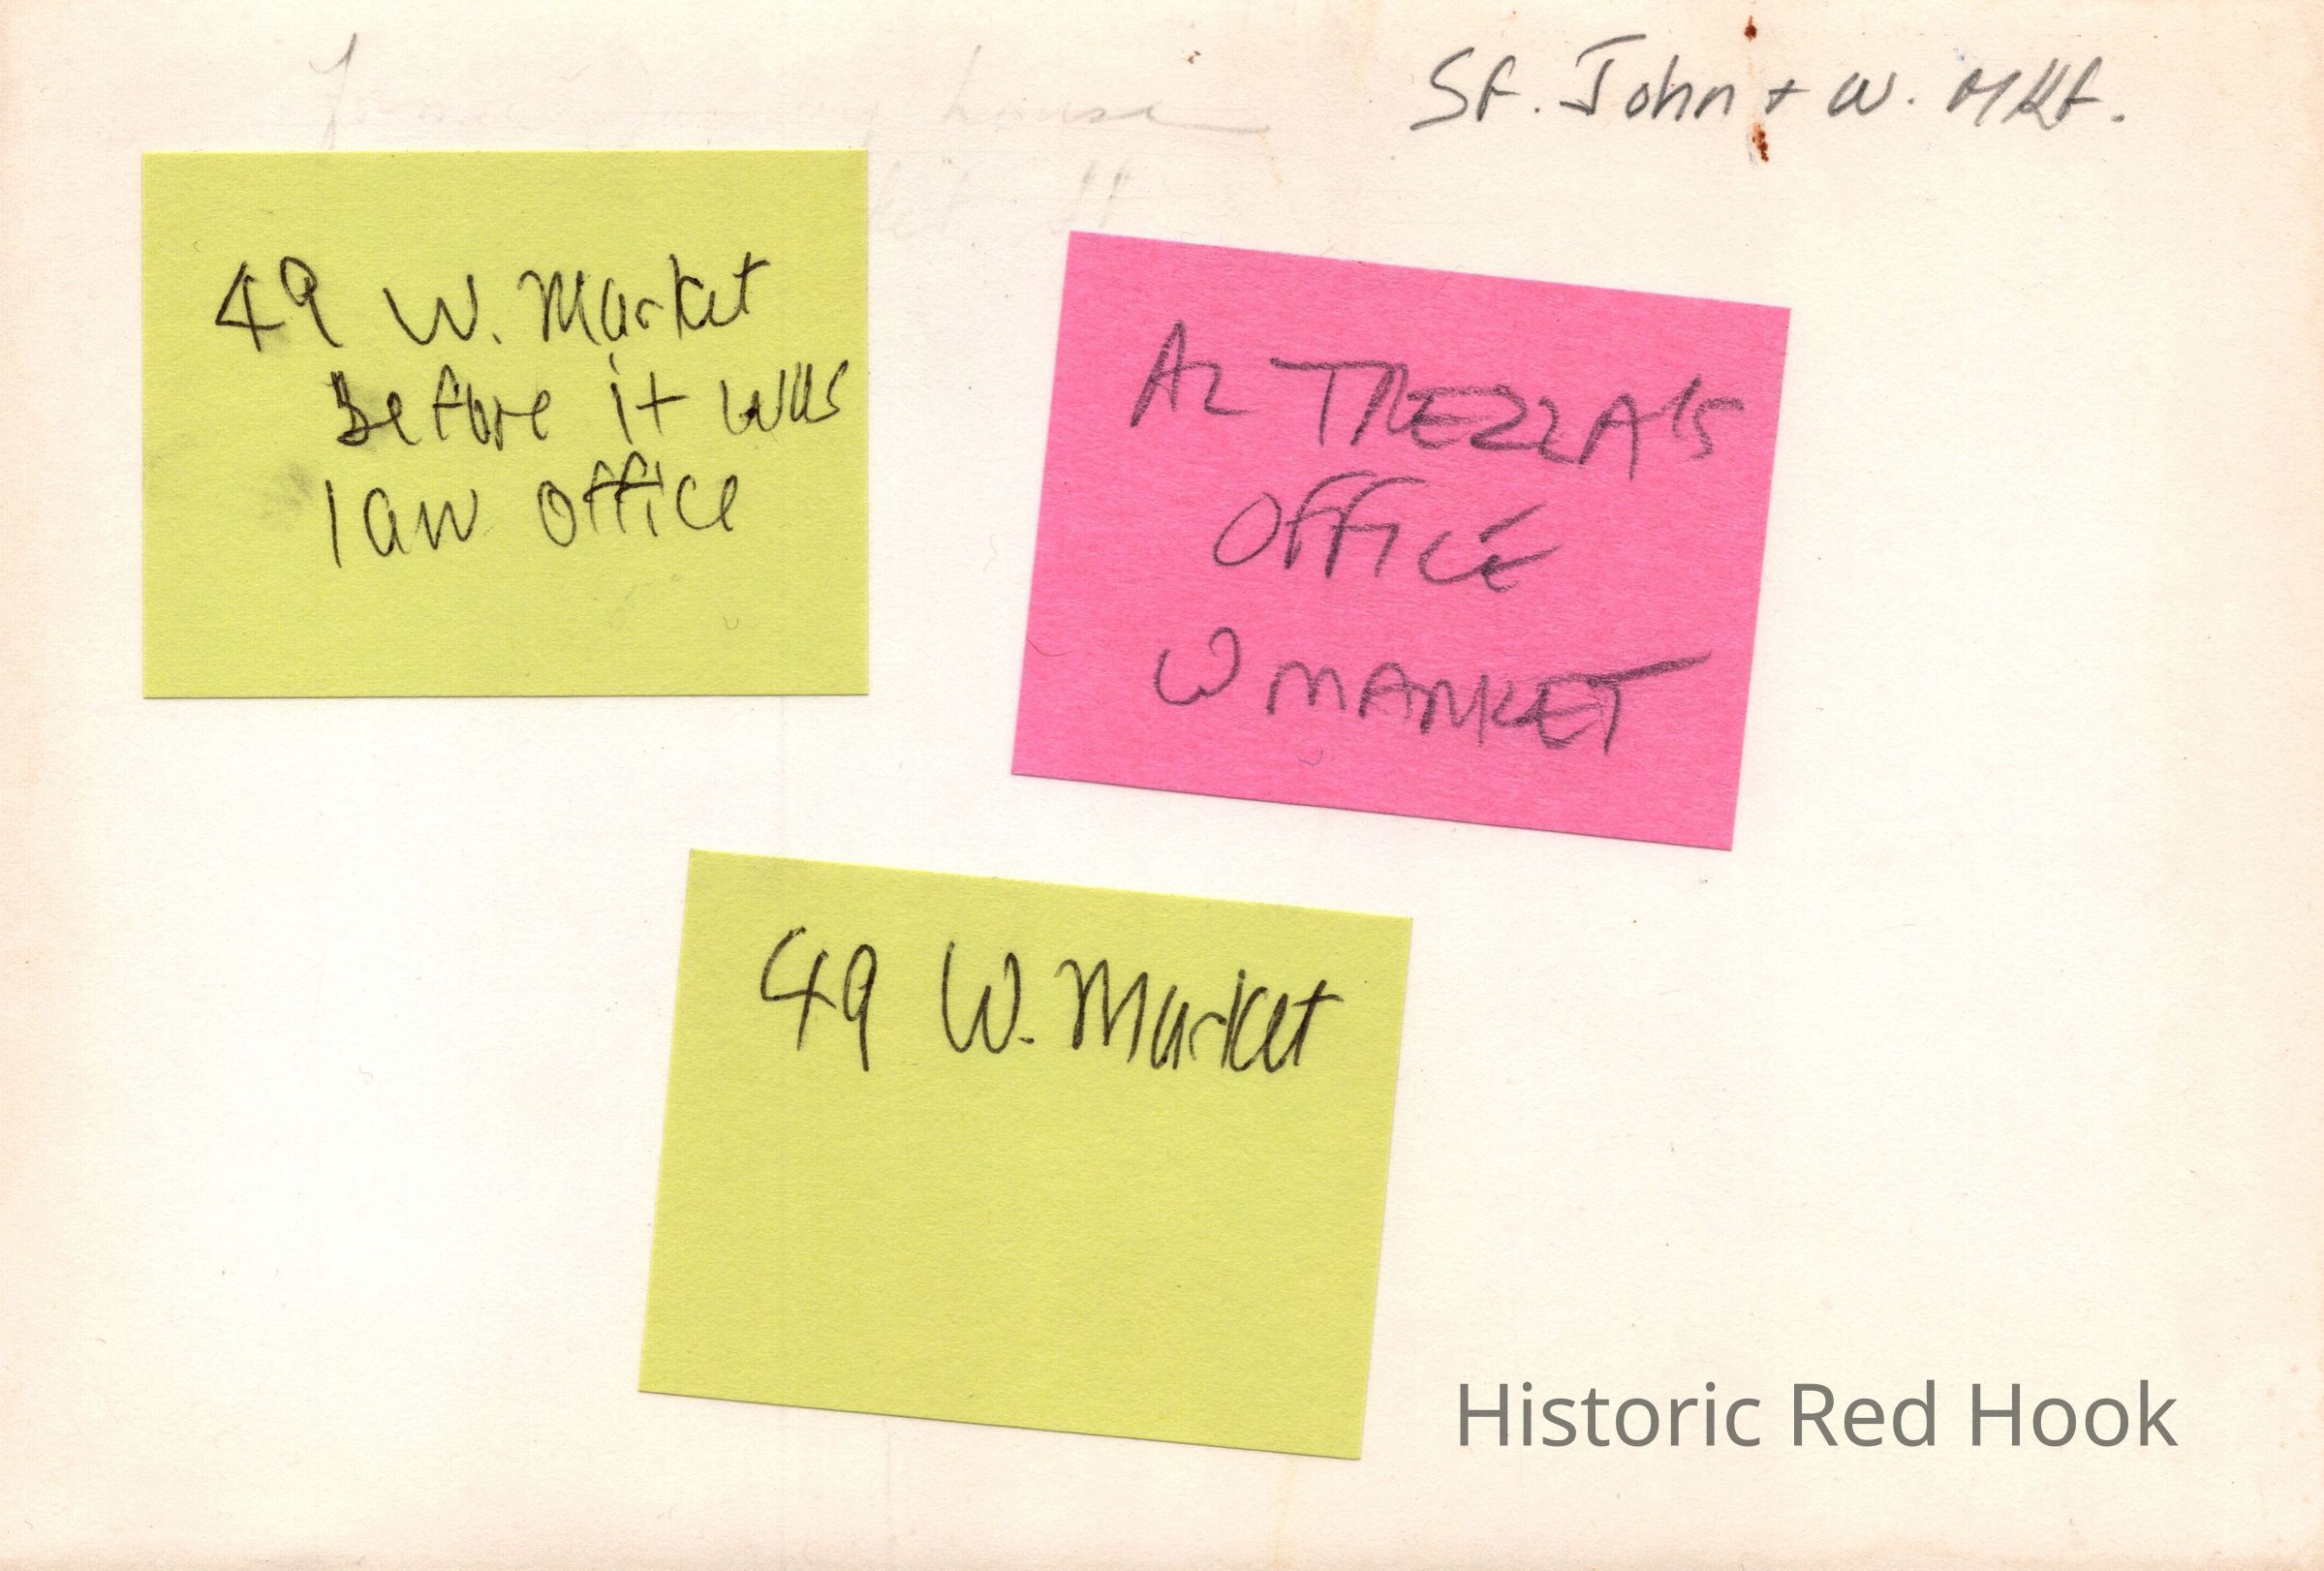 St. John + W. MKt.
house
49 W. Market
Before it was
law office
AL TREZZA'S
OFFICE
W MARKET
49 W. Market
Historic Red Hook